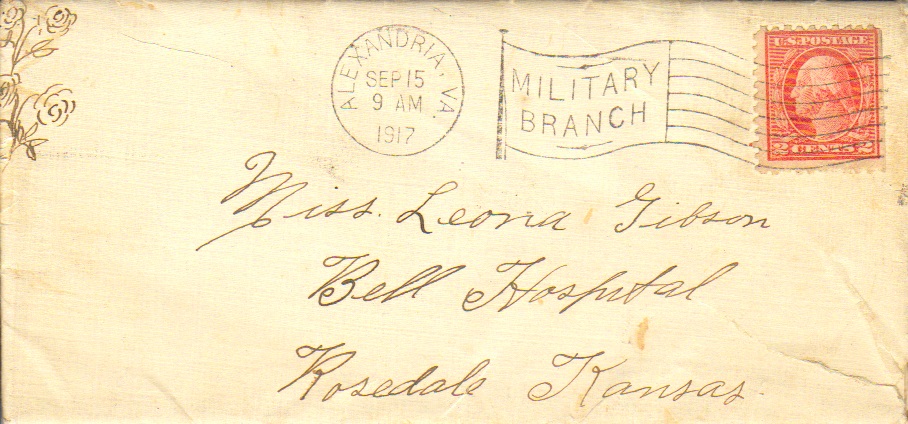 ALEXANDRIA, VA.
SEP 15
9 AM
1917
MILITARY
BRANCH
U.S. POSTAGE
2 CENTS 2
Miss. Leona Gibson
Bell Hospital
Rosedale Kansas.